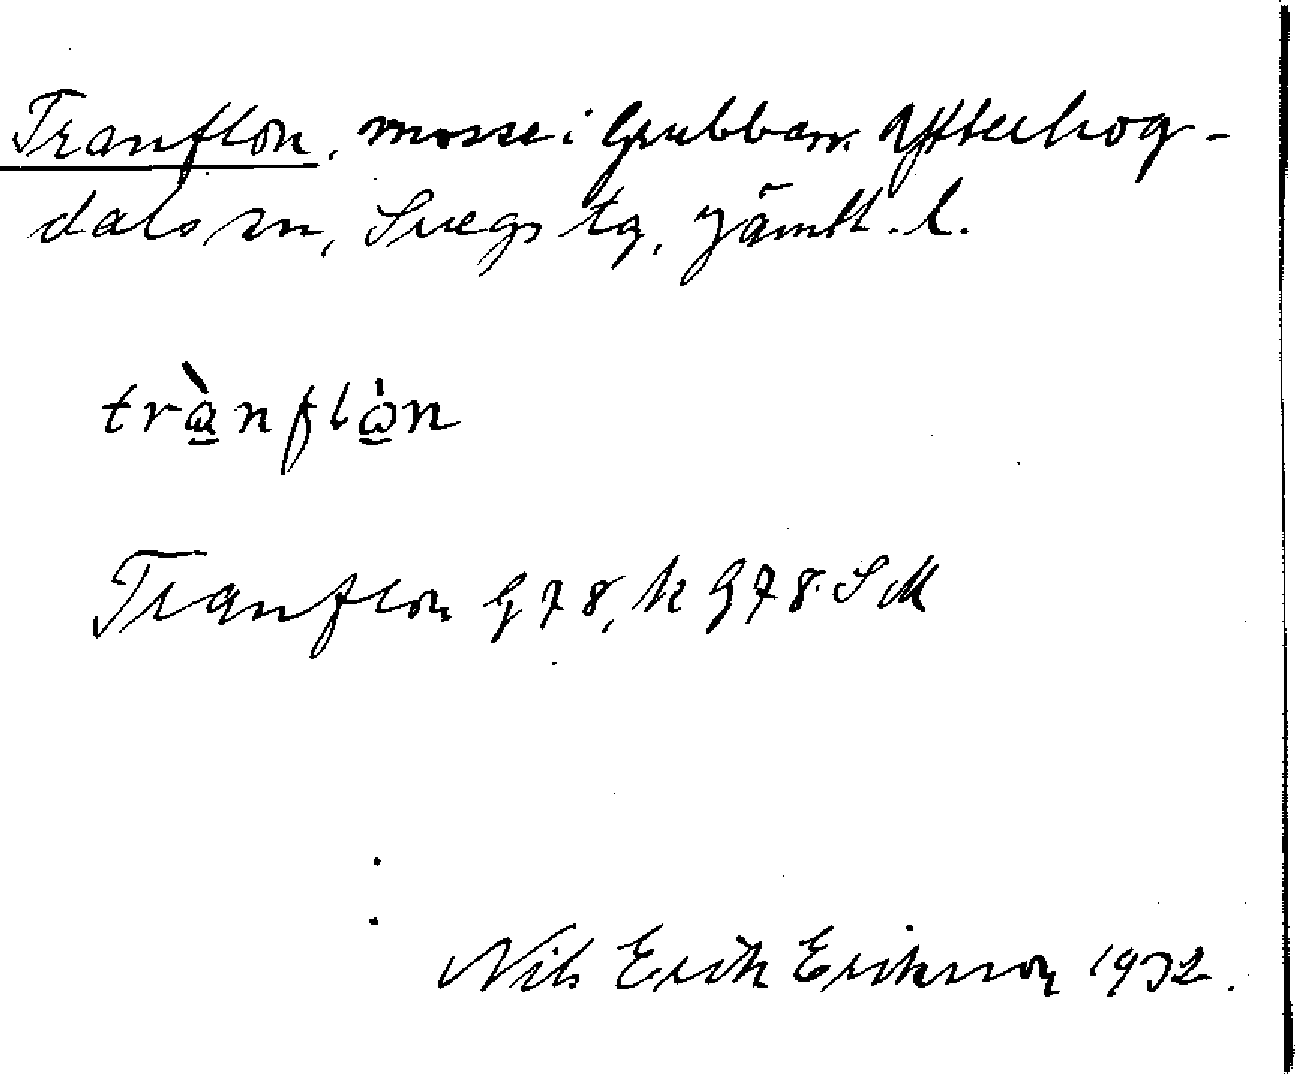 Tranflon, mosse i Grubban. Ytterhog-
dals sn, Svegs tg, Jämtl. l.
trànflòn
Tranflon G78, k G78. SM
Nils Erik Eriksson 1932.